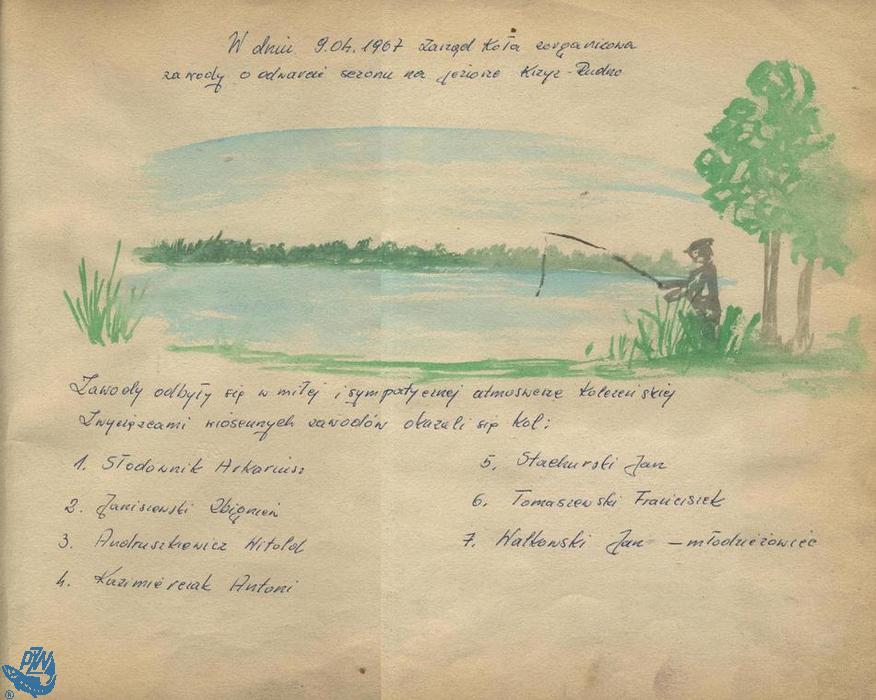 W dniu 9.04.1967 Zarząd Koła zorganizowa
zawody o odwarcie sezonu na jeziorze Krzyż-Rudno
Zawody odbyły się w miłej i sympatycznej atmoswerze Koleżeńskiej
Zwycięzcami wiosennych zawodów okazali się Kol:
1. Słodownik Arkariusz
2. Janiszewski Zbigniew
3. Andruszkiewicz Witold
4. Kazimierciak Antoni
5. Stachurski Jan
6. Tomaszewski Franciszek
7. Wałkowski Jan – młodzieżowiec
PZW
®